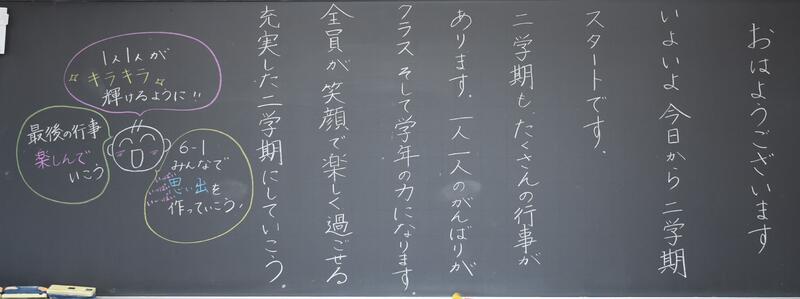 おはようございます
いよいよ 今日から 二学期
スタートです。
二学期も、たくさんの行事が
あります。一人一人のがんばりが
クラス そして学年の力になります。
全員が 笑顔で楽しく過ごせる
充実した二学期にしていこう。
1人1人が
キラキラ
輝けるように!!
最後の行事
楽しんで
いこう
6-1
みんなで
いっぱい
いっぱい
思い出を
作っていこう!